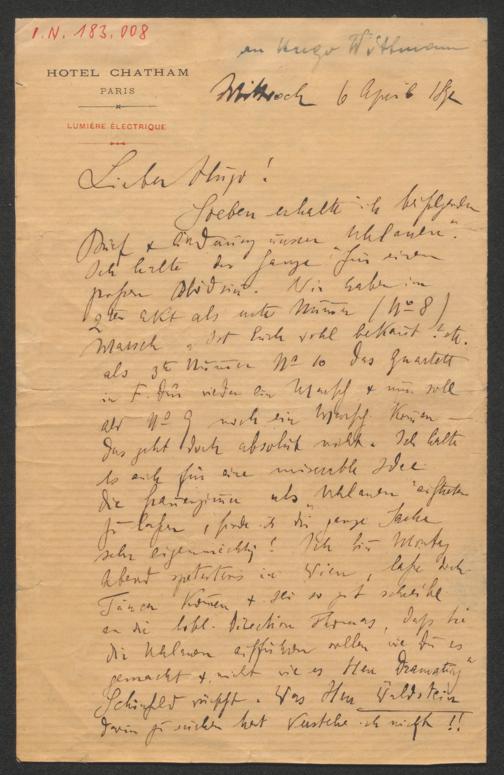 I.N. 183.008
an Hugo Wittmann
HOTEL CHATHAM
PARIS
LUMIÈRE ÉLECTRIQUE
Mittwoch 6 April 189
Lieber Hugo!
Soeben erhalte ich beifolgenden
Brief & Änderung unserer "Uhlanen".
Ich halte das Ganze für einen
großen Blödsinn. Wir haben im
2ten Akt als erste Nummer (No 8)
Marsch "Ist Euch wohl bekannt" etc.
als 3te Nummer No 10 das Quartett
in F-Dur wieder ein Marsch & nun soll
als No 9 noch ein Marsch kommen —
das geht doch absolut nicht. Ich halte
es auch für eine miserable Idee
die Frauenzimmer als "Uhlanen" auftreten
zu lassen, finde ich die ganze Sache
sehr eigenmächtig! Ich bin Montag
Abend spätestens in Wien, lasse
kommen & sei so gut schreibe
an die löbl. Direction Thomas, daß sie
die Uhlanen aufführen sollen wie Du es
gemacht & nicht wie es Herr "Dramaturg"
Schönfeld wünscht. Was Herr Waldstein
darin zu suchen hat verstehe ich nicht!!